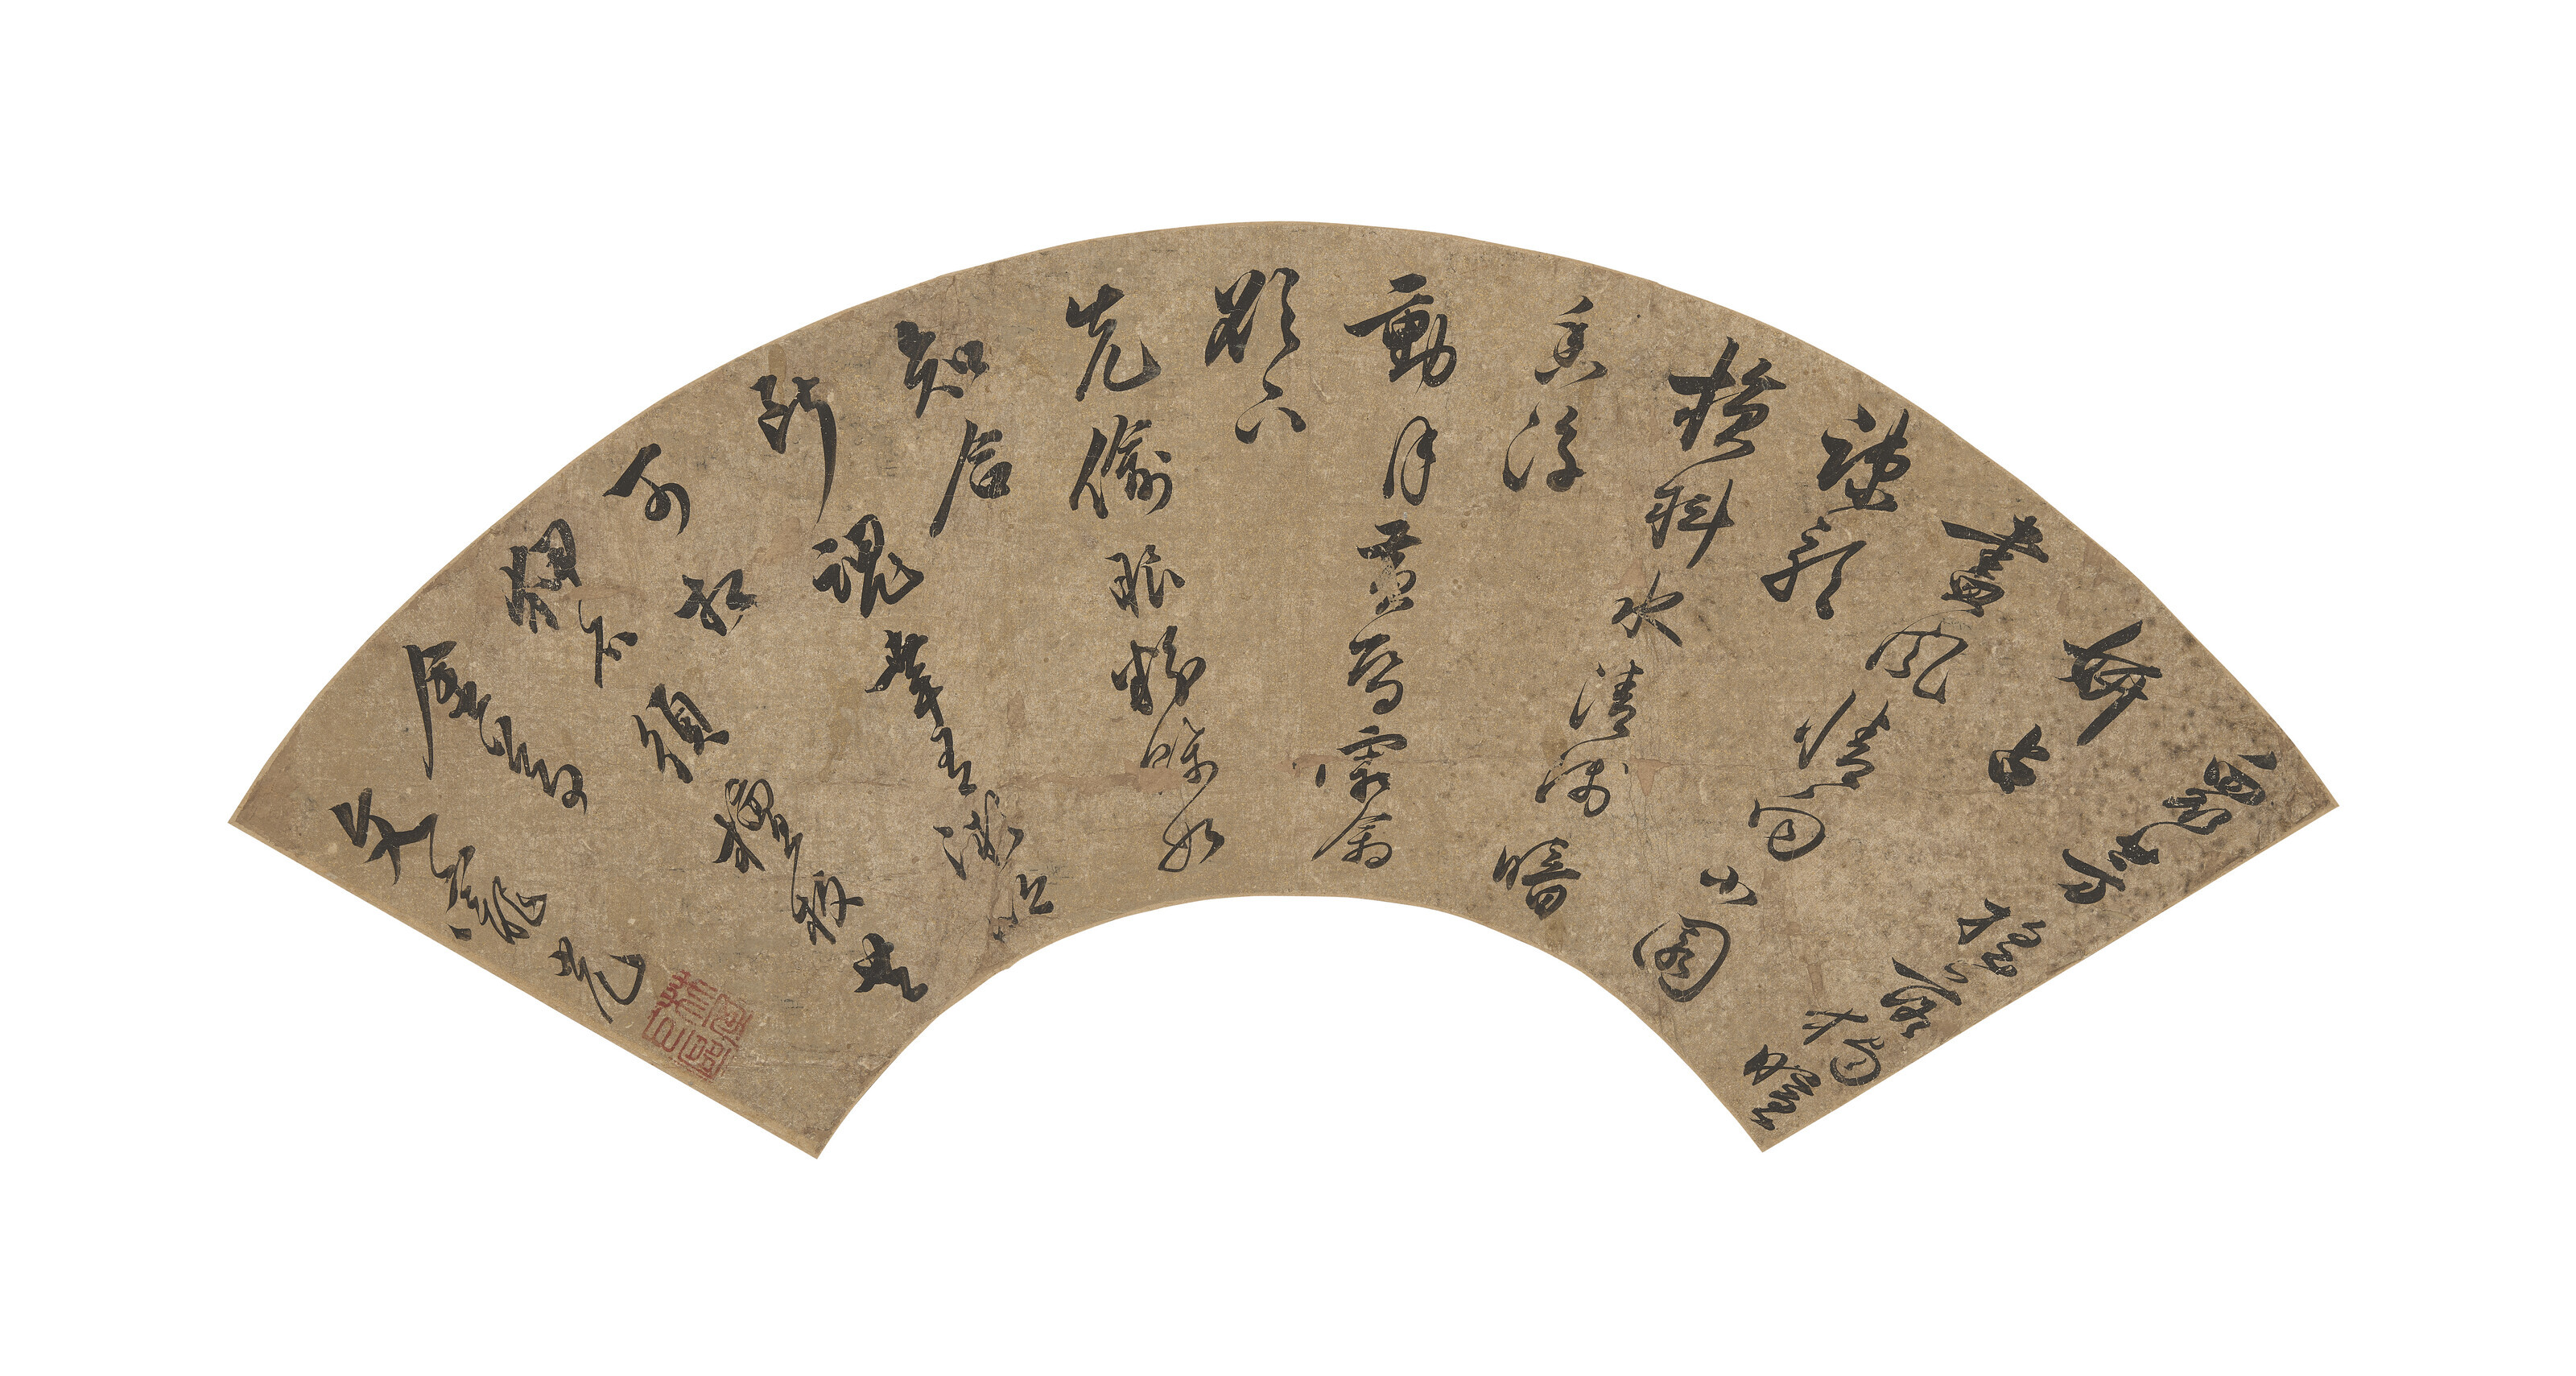 眾芳搖落獨暄
妍占
盡風情向小園
疎影
橫斜水清淺暗
香浮
動月黃昏霜禽
欲下
先偷眼粉蝶如
知合
斷魂幸有微吟
可相
狎不須檀板共